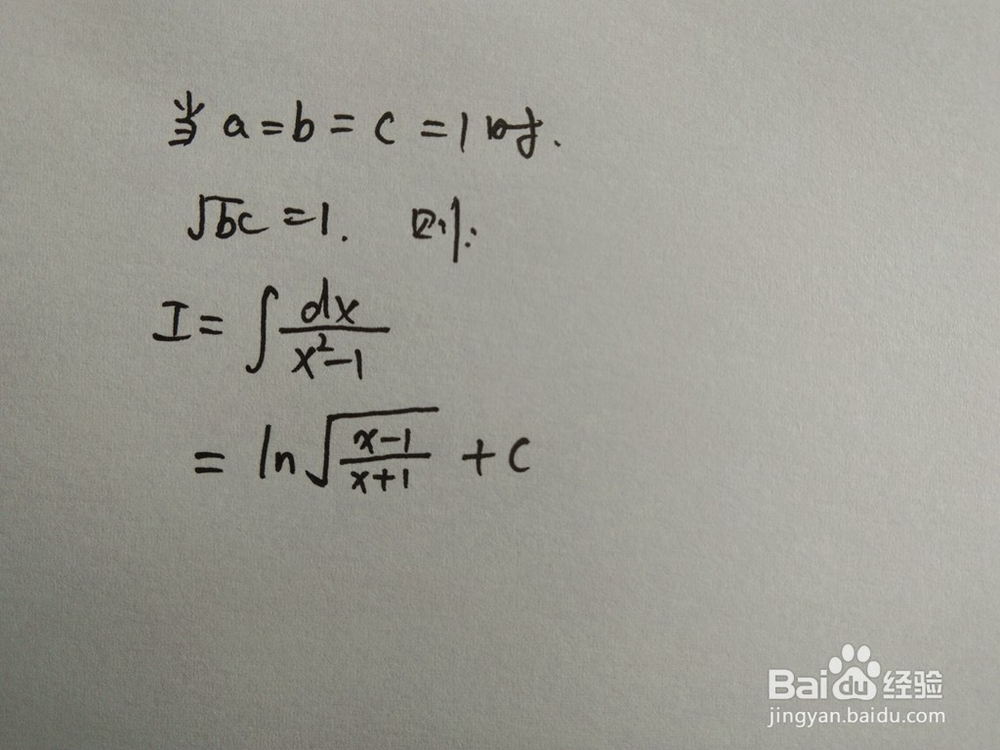 当 a=b=c=1时.
√bc=1. 则:
I=∫dx/(x²-1)
=ln√((x-1)/(x+1))+C
Baidu经验
jingyan.baidu.com